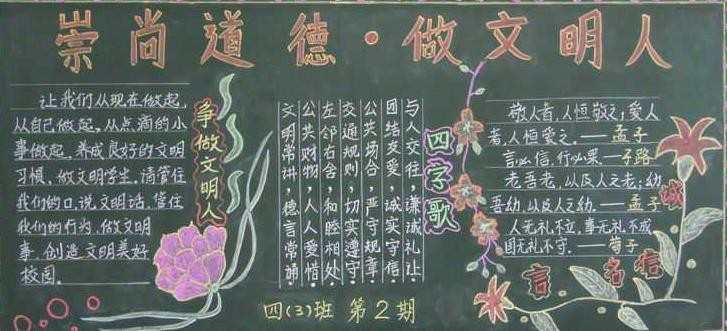 崇尚道德·做文明人
让我们从现在做起,
从自己做起,从点滴的小
事做起,养成良好的文明
习惯,做文明学生。请管住
我们的口,说文明话,管住
我们的行为,做文明
事,创造文明美好
校园。
争做文明人
四字歌
与人交往,谦诚礼让。
团结友爱,诚实守信。
公共场合,严守规章。
交通规则,切实遵守。
左邻右舍,和睦相处。
公共财物,人人爱惜。
文明常讲,德言常诵。
敬人者,人恒敬之;爱人
者,人恒爱之。——孟子
言必信,行必果——子路
老吾老,以及人之老;幼
吾幼,以及人之幼。——孟子
人无礼不立,事无礼不成
国无礼不守。——荀子
诚信名言
四(3)班 第2期